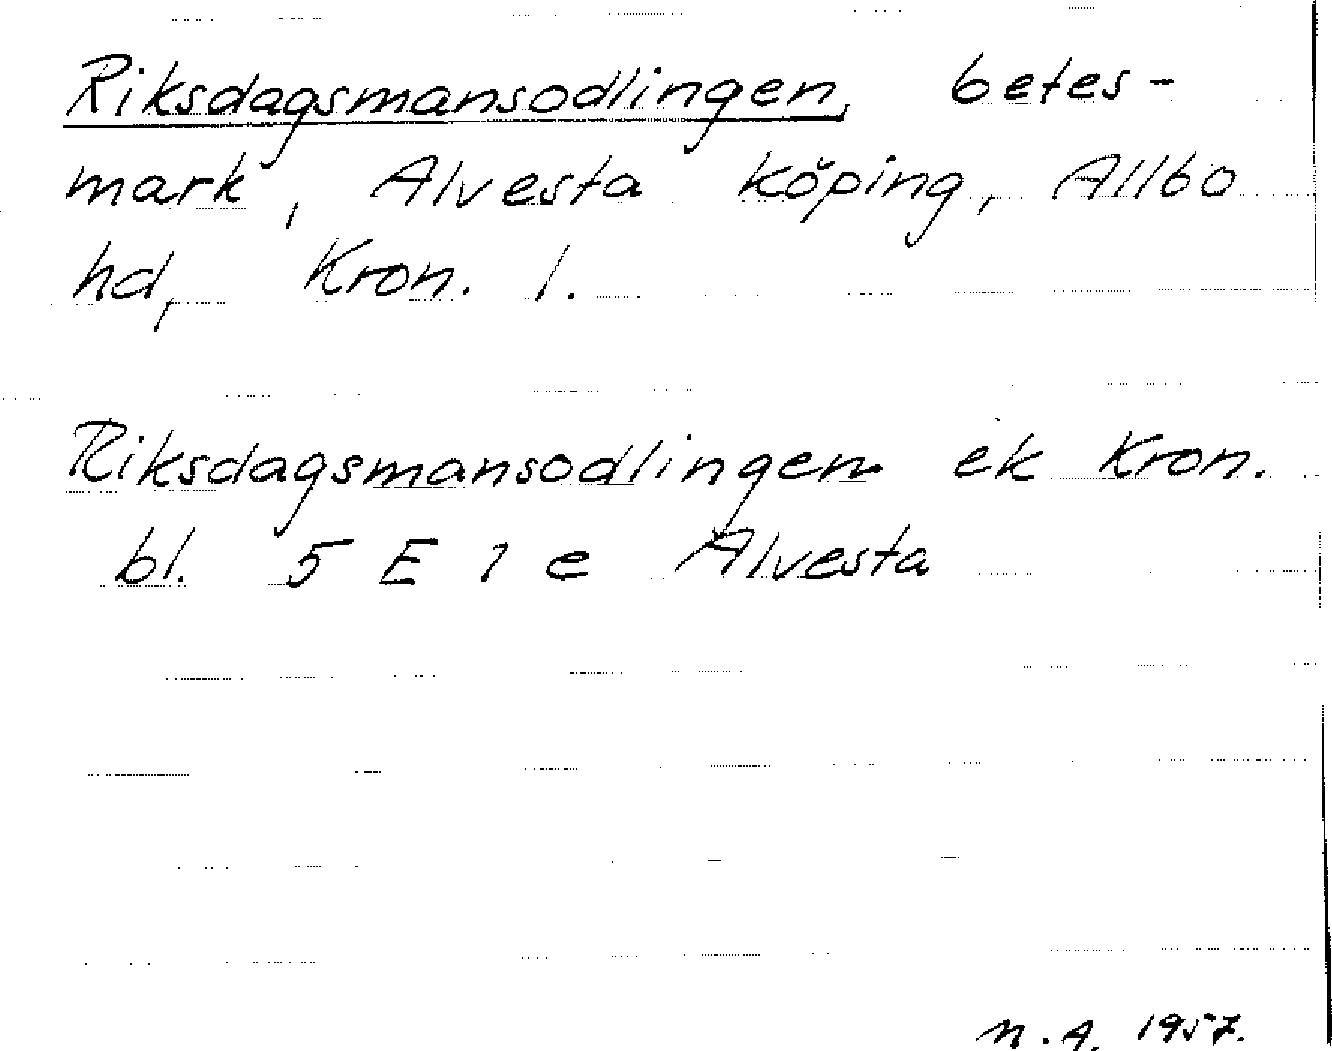 Riksdagsmansodlingen, betes-
mark, Alvesta köping, Allbo
hd, Kron. l.
Riksdagsmansodlingen ek Kron.
bl. 5 E 1 e Alvesta
N.A. 1957.